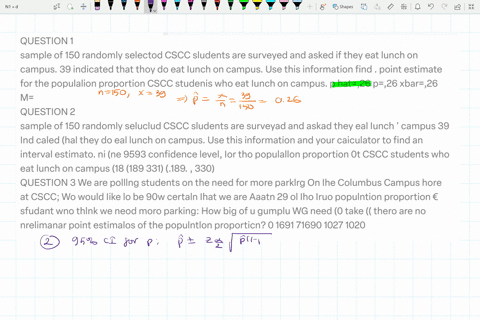 N1 + d
Shapes
QUESTION 1
sample of 150 randomly selectod CSCC sludents are surveyed and asked if they eat lunch on
campus. 39 indicated that thoy do eat lunch on campus. Use this information find . point estimate
for the populalion proportion CSCC studenis who eat lunch on campus. p hat=,26 p=,26 xbar=,26
M=
n=150, x=39 ⇒ p̂ = x/n = 39/150 = 0.26
QUESTION 2
sample of 150 randomly seluclud CSCC students are surveyad and askad they eal lunch ' campus 39
Ind caled (hal they do eal lunch on campus. Use this information and your caiculator to find an
interval estimato. ni (ne 9593 confidence level, Ior tho populallon proportion 0t CSCC students who
eat lunch on campus (18 (189 331) (.189. , 330)
QUESTION 3 We are pollIng students on the need for more parkIrg On Ihe Columbus Campus hore
at CSCC; Wo would Iike lo be 90w certaln Ihat we are Aaatn 29 ol Iho Iruo populntion proportion €
sfudant wno thlnk we neod moro parking: How big of u gumplu WG need (0 take (( there are no
nrelimanar point estimalos of the populntlon proportlon? 0 1691 71690 1027 1020
② 95% CI for p: p̂ ± z α/2 √p̂(1-